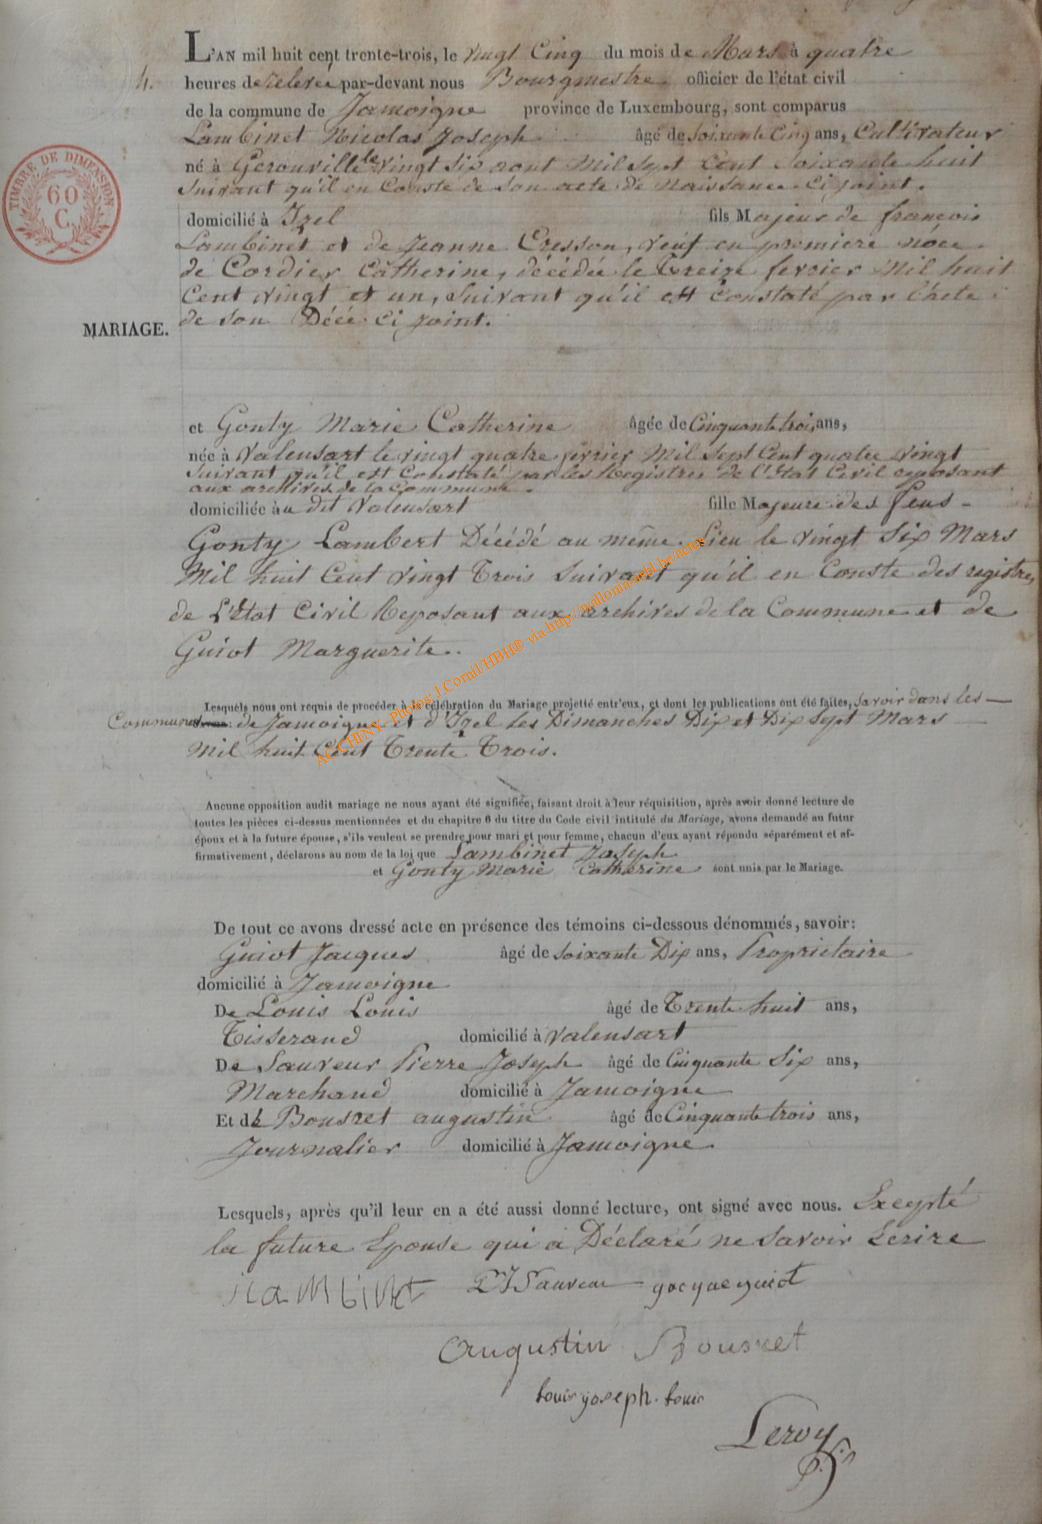 L'AN mil huit cent trente-trois, le vingt Cinq du mois de Mars à quatre
4. heures de relevée par-devant nous Bourgmestre officier de l'état civil
de la commune de Jamoigne province de Luxembourg, sont comparus
Lambinet Nicolas Joseph âgé de Soixante Cinq ans, Cultivateur
né à Gerouville le vingt Six aout Mil Sept Cent Soixante huit
Suivant qu'il en Conste de Son acte de Naissance Ci joint.
TIMBRE DE DIMENSION
60
C.
domicilié à Izel fils Majeur de françois
Lambinet et de Jeanne Cresson, veuf en premiere nôce
de Cordier Catherine, décédée le Treize fevrier Mil huit
Cent vingt et un, Suivant qu'il est Constaté par l'Acte
de Son Décé Ci joint.
MARIAGE.
et Gonty Marie Catherine âgée de Cinquante trois ans,
née à Valensart le vingt quatre fevrier Mil Sept Cent quatre vingt
Suivant qu'il est Constaté par les Registres de l'Etat Civil reposant
aux archives de la Commune.
domiciliée au dit Valensart fille Majeure des feus
Gonty Lambert Décédé au même Lieu le vingt Six Mars
Mil huit Cent vingt Trois Suivant qu'il en Conste des registres
de L'Etat Civil Reposant aux archives de la Commune et de
Guiot Marguerite.
Lesquels nous ont requis de procéder à la célébration du Mariage projetté entr'eux, et dont les publications ont été faites, Savoir dans les
Communes de Jamoigne et d'Izel les Dimanches Dix et Dix Sept Mars
Mil huit Cent Trente Trois.
AC CHINY - Photos J Cornil HBH® via http://
Aucune opposition audit mariage ne nous ayant été signifiée, faisant droit à leur réquisition, après avoir donné lecture de
toutes les pièces ci-dessus mentionnées et du chapitre 6 du titre du Code civil intitulé du Mariage, avons demandé au futur
époux et à la future épouse, s'ils veulent se prendre pour mari et pour femme, chacun d'eux ayant répondu séparément et af-
firmativement, déclarons au nom de la loi que Lambinet Joseph
et Gonty Marie Catherine sont unis par le Mariage.
De tout ce avons dressé acte en présence des témoins ci-dessous dénommés, savoir:
Guiot Jacques âgé de Soixante Dix ans, Propriétaire
domicilié à Jamoigne
De Louis Louis âgé de Trente huit ans,
Tisserand domicilié à Valensart
De Sauveur Pierre Joseph âgé de Cinquante Six ans,
Marchand domicilié à Jamoigne
Et de Bousret augustin âgé de Cinquante trois ans,
Journalier domicilié à Jamoigne
Lesquels, après qu'il leur en a été aussi donné lecture, ont signé avec nous. Excepté
la future Epouse qui a Déclaré ne Savoir Ecrire
Lambinet P J Sauveur jacque guiot
Augustin Bousret
Louis joseph Louis
Leroy